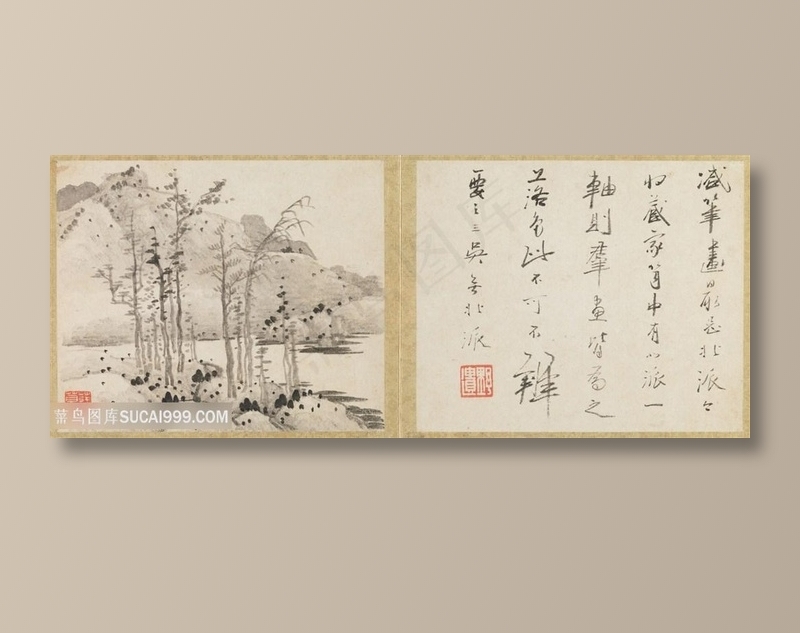 減筆畫最忌北派
藏家中有此派一
軸則群畫皆為之
落色此不可不辨
要之三吳無北派
菜鸟图库SUCAI999.COM
图库